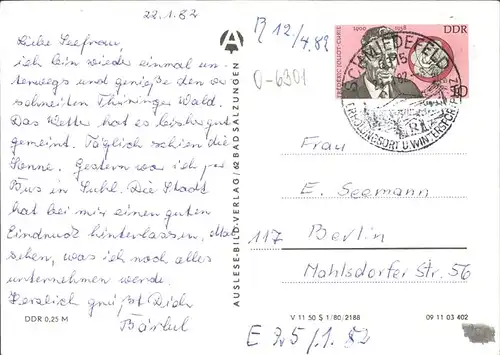 22.1.82
Liebe Seefrau,
ich bin wieder einmal un-
terwegs und genieße den ver
schneiten Thüringer Wald.
Das Wetter hat es bisher gut
gemeint. Täglich schien die
Sonne. Gestern war ich per
Bus in Suhl. Die Stadt
hat bei mir einen guten
Eindruck hinterlassen. Mal
sehen, was ich noch alles
unternehmen werde.
Herzlich grüßt Dich
Bärbel
DDR 0,25 M
AUSLESE-BILD-VERLAG / 62 BAD SALZUNGEN
12/4.82
0-6301
1900 1958
DDR
FRÉDÉRIC JOLIOT-CURIE
10
SCHMIEDEFELD
ERHOLUNGSORT U. WINTERSPORTPLATZ
Frau
E. Seemann
117 Berlin
Mahlsdorfer Str. 56
V 11 50 § 1/80/2188
09 11 03 402
E 25/1.82